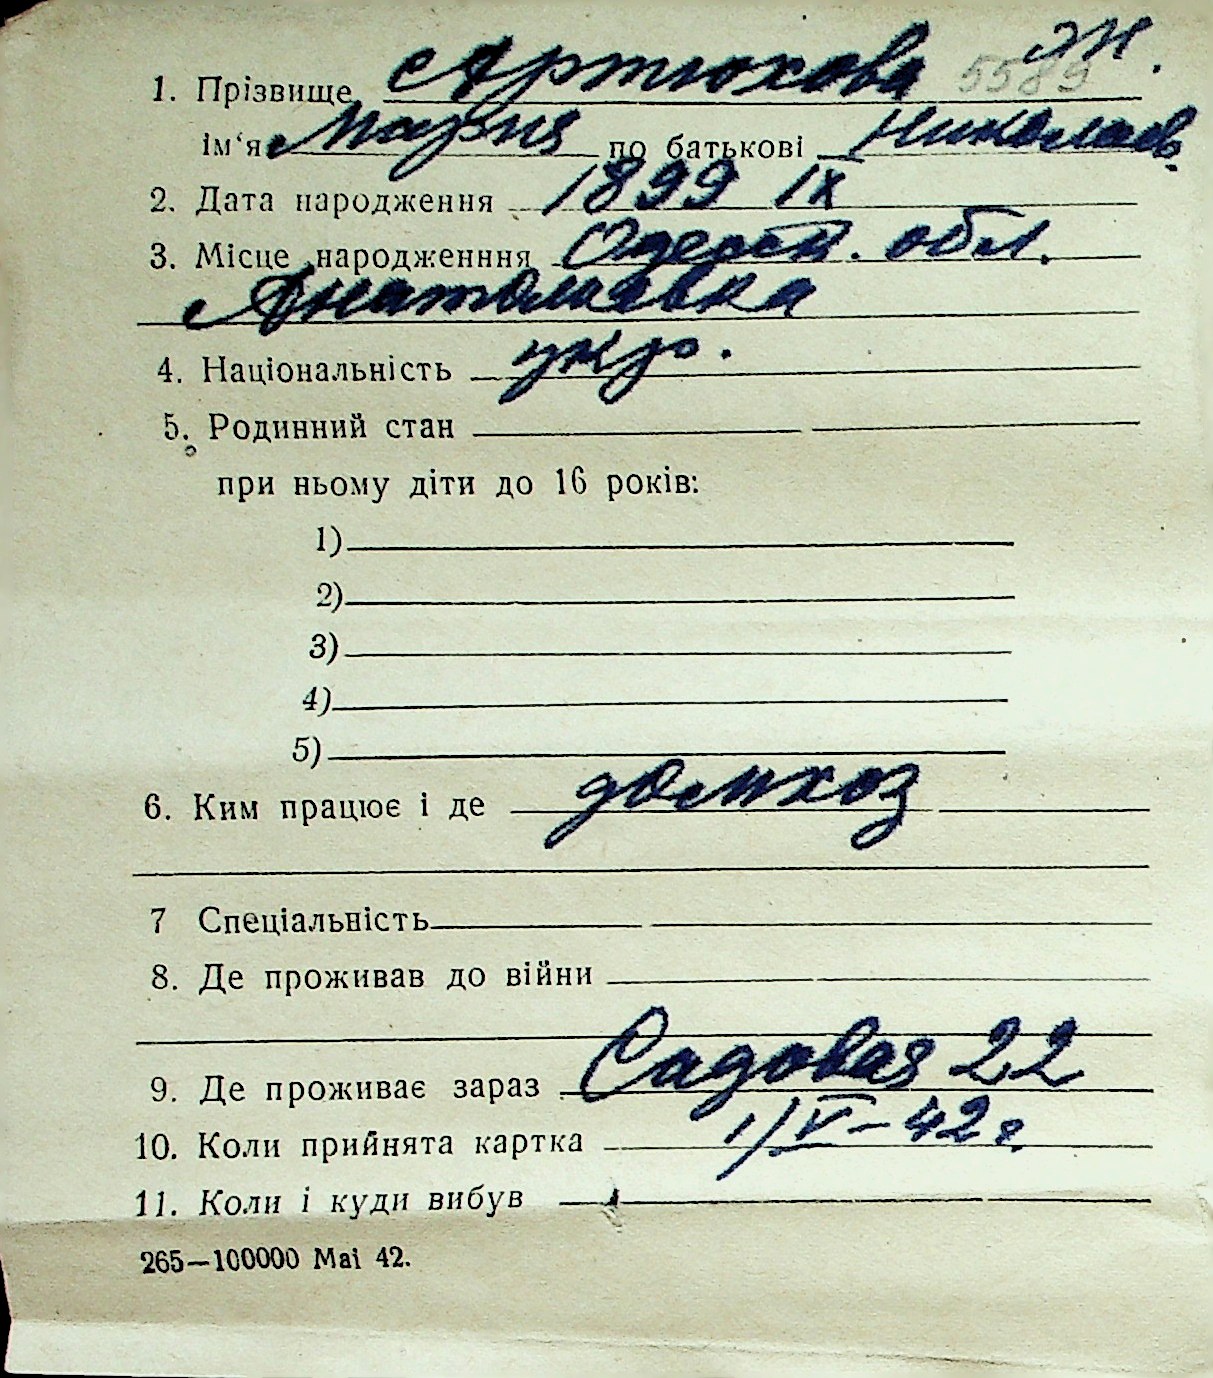 эн.
1. Прізвище Артюхова 5585
ім'я Мария по батькові Николаев.
2. Дата народження 1899 IX
3. Місце народженння Одесск. обл.
Анатолиевка
4. Національність укр.
5. Родинний стан
при ньому діти до 16 років:
1)
2)
3)
4)
5)
6. Ким працює і де домхоз
7 Спеціальність
8. Де проживав до війни
9. Де проживає зараз Садовая 22
10. Коли прийнята картка 1/V-42 г.
11. Коли і куди вибув
265—100000 Mai 42.